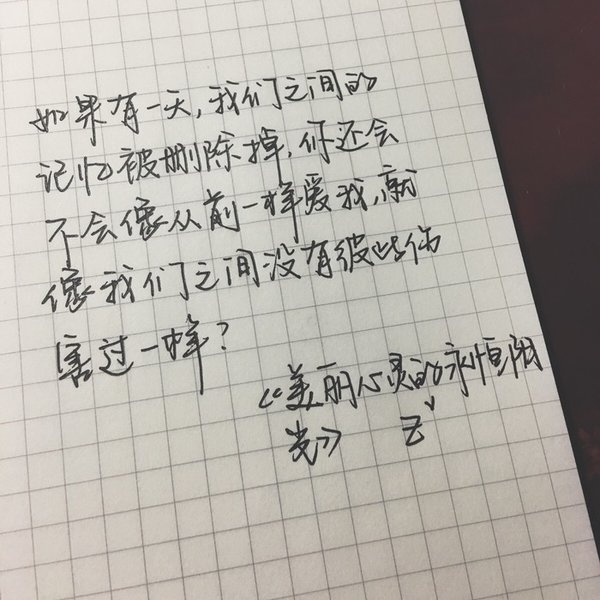 如果有一天,我们之间的
记忆被删除掉,你还会
不会像从前一样爱我,就
像我们之间没有彼此伤
害过一样?
《美丽心灵的永恒阳
光》 Z